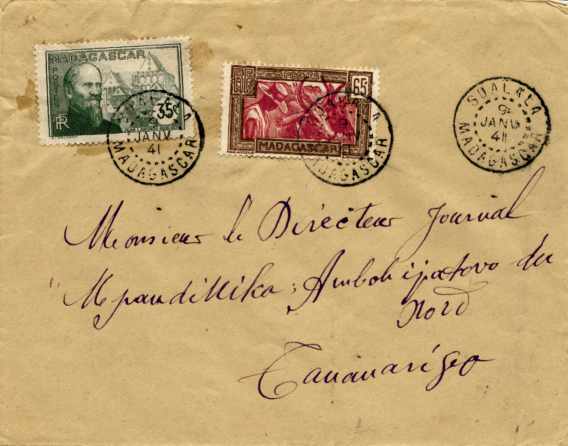 MADAGASCAR
35c
RF
65c
MADAGASCAR
SOALALA
9
JANV
41
MADAGASCAR
SOALALA
MADAGASCAR
SOALALA
9
JANV
41
MADAGASCAR
Monsieur le Directeur Journal
"Mpandinika, Ambohijatovo du
Nord
Tananarivo